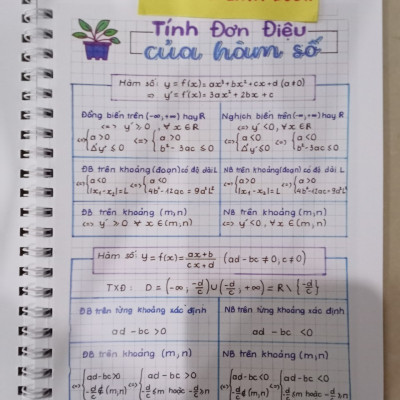 Tính Đơn Điệu
của hàm số
Hàm số: y = f(x) = ax³+bx²+cx+d (a≠0)
⇒ y' = f'(x) = 3ax² + 2bx + c
Đồng biến trên (-∞,+∞) hay R
⇔ y' ≥ 0, ∀x∈R
⇔ {a>0 Δy' ≤ 0 ⇔ {a>0 b²-3ac ≤ 0
Nghịch biến trên (-∞,+∞) hay R
⇔ y' <0, ∀x∈R
⇔ {a<0 Δy' ≤ 0 ⇔ {a<0 b²-3ac ≤ 0
ĐB trên khoảng (đoạn) có độ dài L
⇔ {a<0 |x₁-x₂|=L ⇔ {a<0 4b²-12ac = 9a²L²
NB trên khoảng (đoạn) có độ dài L
⇔ {a>0 |x₁-x₂|=L ⇔ {a>0 4b²-12ac = 9a²L²
ĐB trên khoảng (m,n)
⇔ y' ≥ 0 ∀x∈(m,n)
NB trên khoảng (m,n)
⇔ y' <0, ∀x∈(m,n)
Hàm số: y = f(x) = ax+b/cx+d (ad-bc ≠ 0, c≠0)
TXĐ: D = (-∞, -d/c) ∪ (-d/c, +∞) = R \ {-d/c}
ĐB trên từng khoảng xác định
ad - bc > 0
NB trên từng khoảng xác định
ad - bc < 0
ĐB trên khoảng (m,n)
⇔ {ad-bc>0 -d/c ∉ (m,n) ⇔ {ad-bc>0 -d/c ≤ m hoặc -d/c ≥ n
NB trên khoảng (m,n)
⇔ {ad-bc<0 -d/c ∉ (m,n) ⇔ {ad-bc<0 -d/c ≤ m hoặc -d/c ≥ n